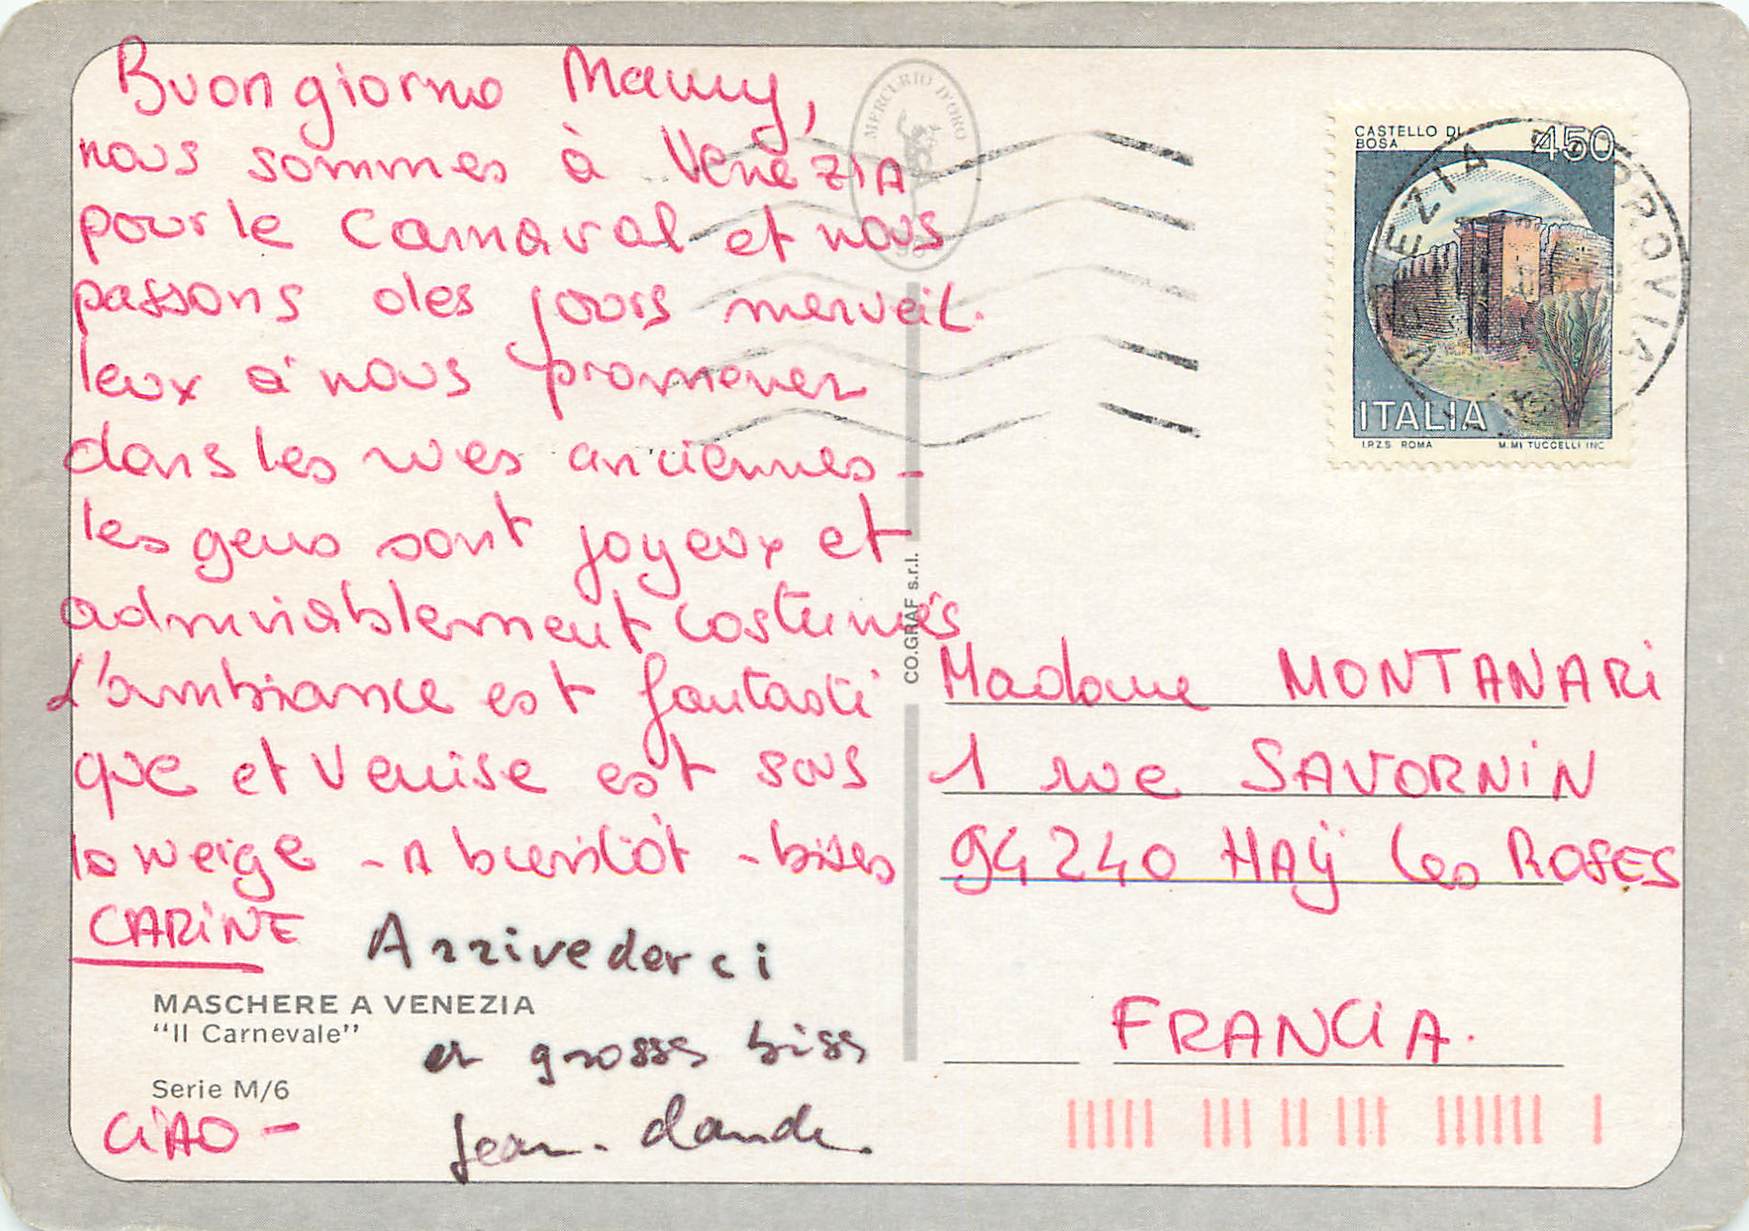 Buongiorno Mamy,
nous sommes à VeneZIA
pour le Carnaval et nous
passons des jours merveil-
leux à nous promener
dans les rues anciennes -
les gens sont joyeux et
admirablement costumés
L'ambiance est fantasti
que et Venise est sous
la neige - A bientôt - bises
CARINE
Arrivederci
et grosses bises
Jean-claude.
MASCHERE A VENEZIA
"Il Carnevale"
Serie M/6
CIAO -
MERCURIO D'ORO
CO.GRAF s.r.l.
CASTELLO DI
BOSA
450
ITALIA
I.P.Z.S. ROMA
M.MI TUCCELLI INC.
VENEZIA FERROVIA
Madame MONTANARI
1 rue SAVORNIN
94240 HAŸ les ROSES
FRANCIA.